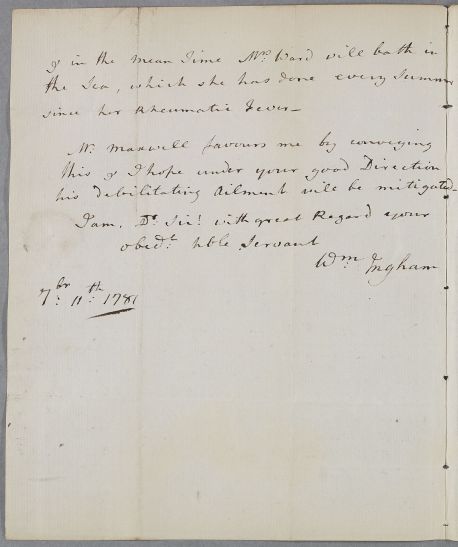 & in the mean Time Mrs. Ward will bath in
the Sea, which she has done every Summer
since her Rheumatic Fever—
Mr. Maxwell favours me by conveying
this & I hope under your good Direction
his debilitating Ailment will be mitigated—
I am, Dr. Sir! with great Regard your
obedt. hble Servant
Wm Ingham
7br. 11th: 1781